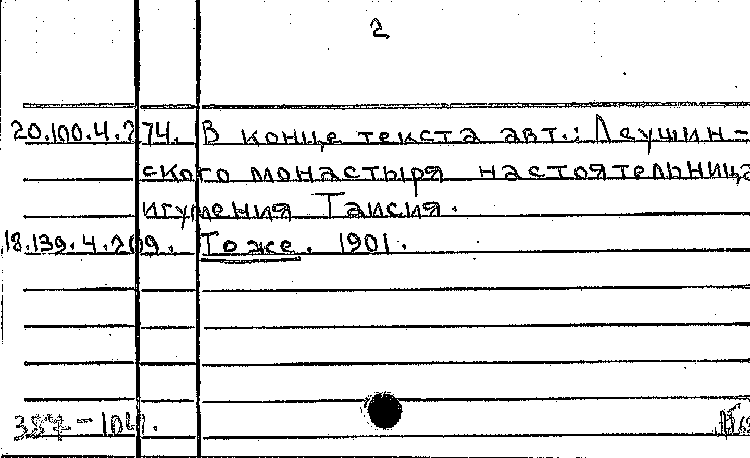 2
20.100.4.274. В конце текста авт.: Леушин-
ского монастыря настоятельница
игумения Таисия.
18.139.4.209. То же. 1901.